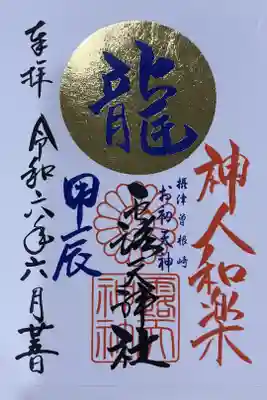 龍
神人和楽
摂津曽根崎
お初天神
露天神社
露天
神社
甲辰
奉拝
令和六年六月廿五日